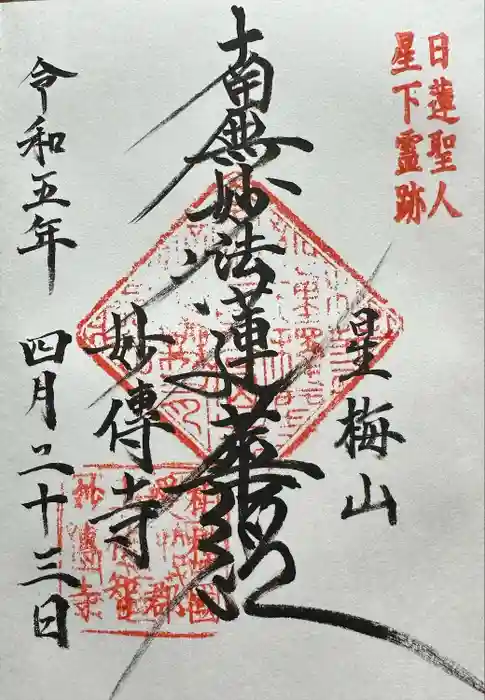 日蓮聖人
星下霊跡
星梅山
南無妙法蓮華経
妙傳寺
令和五年 四月二十三日